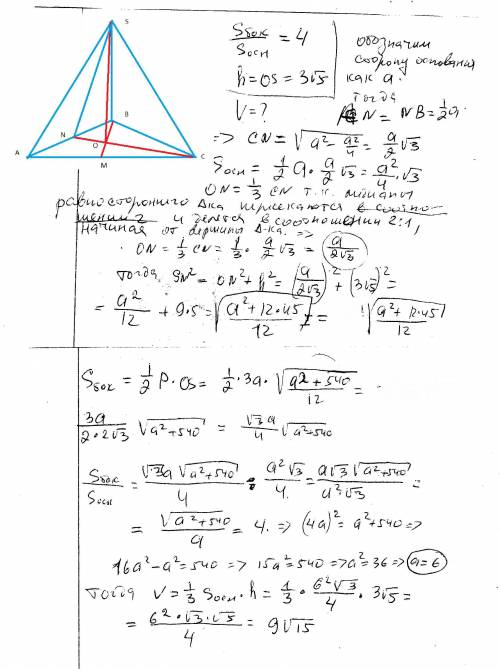 S
B
N
O
A
C
M
Sбок/Sосн = 4
h = OS = 3√5
V = ?
обозначим
сторону основания
как a.
тогда
AN = NB = 1/2 a.
=> CN = √(a² - a²/4) = a/2 √3
Sосн = 1/2 a · a/2 √3 = a²/4 · √3
ON = 1/3 CN т.к. медианы
равностороннего Δка пересекаются в соотно-
шении 2 и делятся в соотношении 2:1,
начиная от вершины Δ-ка. =>
ON = 1/3 CN = 1/3 · a/2 √3 = a/2√3
тогда SN² = ON² + h² = (a/2√3)² + (3√5)² =
= a²/12 + 9·5 = √(a² + 12·45)/12 = √(a² + 12·45)/12
Sбок = 1/2 P · OS = 1/2 · 3a · √(a² + 540)/12 =
3a/2·2√3 √(a² + 540) = √3 a/4 √(a² + 540)
Sбок/Sосн = √3a √(a² + 540)/4 : a²√3/4 = a√3 √(a² + 540)/a²·√3 =
= √(a² + 540)/a = 4. => (4a)² = a² + 540 =>
16a² - a² = 540 => 15a² = 540 => a² = 36 => a = 6
тогда V = 1/3 Sосн · h = 1/3 · 6²√3/4 · 3√5 =
= 6² · √3 · √5/4 = 9√15